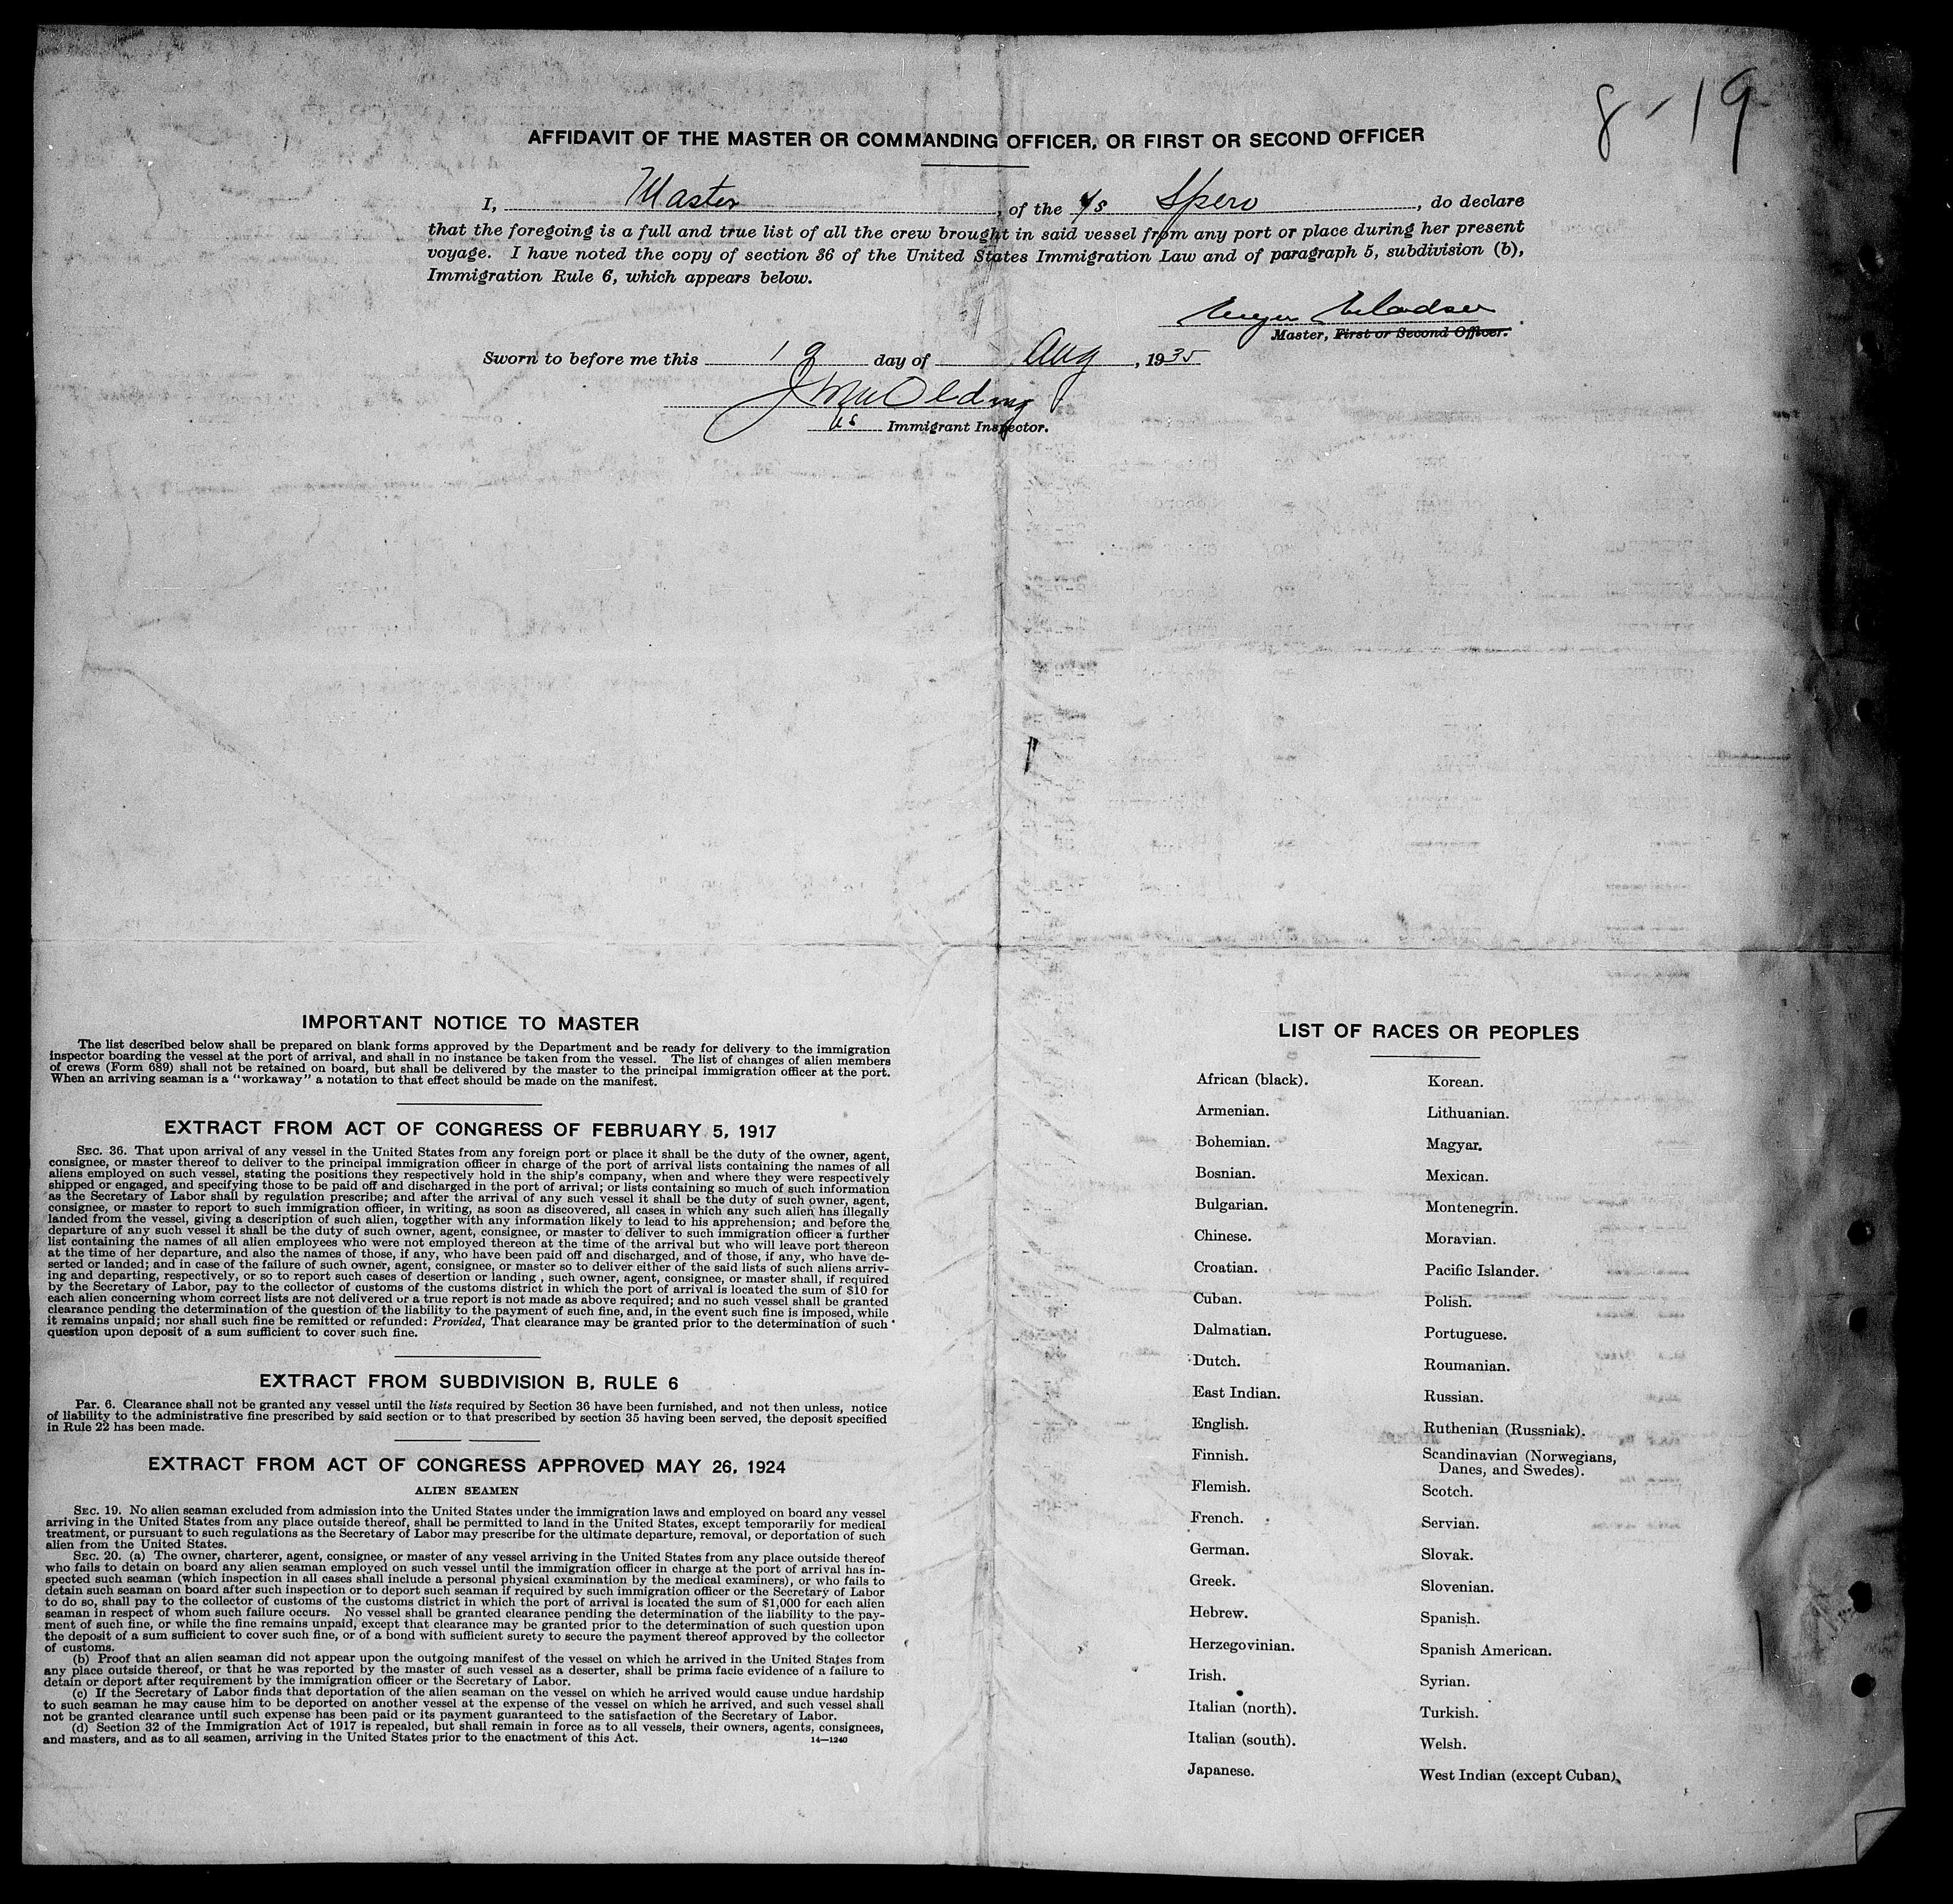 8-19
AFFIDAVIT OF THE MASTER OR COMMANDING OFFICER, OR FIRST OR SECOND OFFICER
I, Master, of the Spero, do declare
that the foregoing is a full and true list of all the crew brought in said vessel from any port or place during her present
voyage. I have noted the copy of section 36 of the United States Immigration Law and of paragraph 5, subdivision (b),
Immigration Rule 6, which appears below.
Master, First or Second Officer.
Sworn to before me this 19 day of Aug, 1935
Immigrant Inspector.
IMPORTANT NOTICE TO MASTER
The list described below shall be prepared on blank forms approved by the Department and be ready for delivery to the immigration
inspector boarding the vessel at the port of arrival, and shall in no instance be taken from the vessel. The list of changes of alien members
of crews (Form 689) shall not be retained on board, but shall be delivered by the master to the principal immigration officer at the port.
When an arriving seaman is a "workaway" a notation to that effect should be made on the manifest.
EXTRACT FROM ACT OF CONGRESS OF FEBRUARY 5, 1917
SEC. 36. That upon arrival of any vessel in the United States from any foreign port or place it shall be the duty of the owner, agent,
consignee, or master thereof to deliver to the principal immigration officer in charge of the port of arrival lists containing the names of all
aliens employed on such vessel, stating the positions they respectively hold in the ship's company, when and where they were respectively
shipped or engaged, and specifying those to be paid off and discharged in the port of arrival; or lists containing so much of such information
as the Secretary of Labor shall by regulation prescribe; and after the arrival of any such vessel it shall be the duty of such owner, agent,
consignee, or master to report to such immigration officer, in writing, as soon as discovered, all cases in which any such alien has illegally
landed from the vessel, giving a description of such alien, together with any information likely to lead to his apprehension; and before the
departure of any such vessel it shall be the duty of such owner, agent, consignee, or master to deliver to such immigration officer a further
list containing the names of all alien employees who were not employed thereon at the time of the arrival but who will leave port thereon
at the time of her departure, and also the names of those, if any, who have been paid off and discharged, and of those, if any, who have de-
serted or landed; and in case of the failure of such owner, agent, consignee, or master so to deliver either of the said lists of such aliens arriv-
ing and departing, respectively, or so to report such cases of desertion or landing, such owner, agent, consignee, or master shall, if required
by the Secretary of Labor, pay to the collector of customs of the customs district in which the port of arrival is located the sum of $10 for
each alien concerning whom correct lists are not delivered or a true report is not made as above required; and no such vessel shall be granted
clearance pending the determination of the question of the liability to the payment of such fine, and, in the event such fine is imposed, while
it remains unpaid; nor shall such fine be remitted or refunded: Provided, That clearance may be granted prior to the determination of such
question upon deposit of a sum sufficient to cover such fine.
EXTRACT FROM SUBDIVISION B, RULE 6
Par. 6. Clearance shall not be granted any vessel until the lists required by Section 36 have been furnished, and not then unless, notice
of liability to the administrative fine prescribed by said section or to that prescribed by section 35 having been served, the deposit specified
in Rule 22 has been made.
EXTRACT FROM ACT OF CONGRESS APPROVED MAY 26, 1924
ALIEN SEAMEN
SEC. 19. No alien seaman excluded from admission into the United States under the immigration laws and employed on board any vessel
arriving in the United States from any place outside thereof, shall be permitted to land in the United States, except temporarily for medical
treatment, or pursuant to such regulations as the Secretary of Labor may prescribe for the ultimate departure, removal, or deportation of such
alien from the United States.
SEC. 20. (a) The owner, charterer, agent, consignee, or master of any vessel arriving in the United States from any place outside thereof
who fails to detain on board any alien seaman employed on such vessel until the immigration officer in charge at the port of arrival has in-
spected such seaman (which inspection in all cases shall include a personal physical examination by the medical examiners), or who fails to
detain such seaman on board after such inspection or to deport such seaman if required by such immigration officer or the Secretary of Labor
to do so, shall pay to the collector of customs of the customs district in which the port of arrival is located the sum of $1,000 for each alien
seaman in respect of whom such failure occurs. No vessel shall be granted clearance pending the determination of the liability to the pay-
ment of such fine, or while the fine remains unpaid, except that clearance may be granted prior to the determination of such question upon
the deposit of a sum sufficient to cover such fine, or of a bond with sufficient surety to secure the payment thereof approved by the collector
of customs.
(b) Proof that an alien seaman did not appear upon the outgoing manifest of the vessel on which he arrived in the United States from
any place outside thereof, or that he was reported by the master of such vessel as a deserter, shall be prima facie evidence of a failure to
detain or deport after requirement by the immigration officer or the Secretary of Labor.
(c) If the Secretary of Labor finds that deportation of the alien seaman on the vessel on which he arrived would cause undue hardship
to such seaman he may cause him to be deported on another vessel at the expense of the vessel on which he arrived, and such vessel shall
not be granted clearance until such expense has been paid or its payment guaranteed to the satisfaction of the Secretary of Labor.
(d) Section 32 of the Immigration Act of 1917 is repealed, but shall remain in force as to all vessels, their owners, agents, consignees,
and masters, and as to all seamen, arriving in the United States prior to the enactment of this Act.
14—1240
LIST OF RACES OR PEOPLES
African (black).
Armenian.
Bohemian.
Bosnian.
Bulgarian.
Chinese.
Croatian.
Cuban.
Dalmatian.
Dutch.
East Indian.
English.
Finnish.
Flemish.
French.
German.
Greek.
Hebrew.
Herzegovinian.
Irish.
Italian (north).
Italian (south).
Japanese.
Korean.
Lithuanian.
Magyar.
Mexican.
Montenegrin.
Moravian.
Pacific Islander.
Polish.
Portuguese.
Roumanian.
Russian.
Ruthenian (Russniak).
Scandinavian (Norwegians,
Danes, and Swedes).
Scotch.
Servian.
Slovak.
Slovenian.
Spanish.
Spanish American.
Syrian.
Turkish.
Welsh.
West Indian (except Cuban).